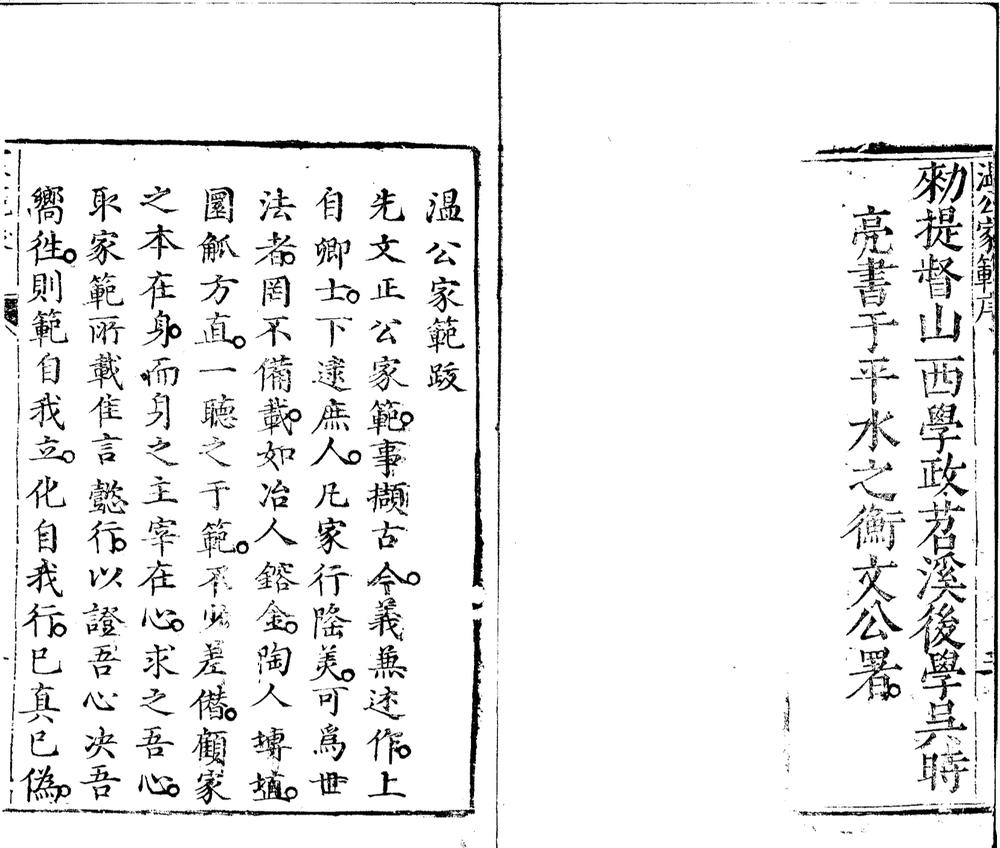 溫公家範序
勑提督山西學政苕溪後學吳時
亮書于平水之衡文公署。
溫公家範跋
先文正公家範。事擷古今。義兼述作。上
自卿士。下逮庶人。凡家行隆美。可爲世
法者。罔不備載。如冶人鎔金。陶人摶埴。
圜觚方直。一聽之于範。不少差僭。顧家
之本在身。而身之主宰在心。求之吾心。
取家範所載隹言懿行。以證吾心決吾
嚮徃。則範自我立。化自我行。巳真巳偽。